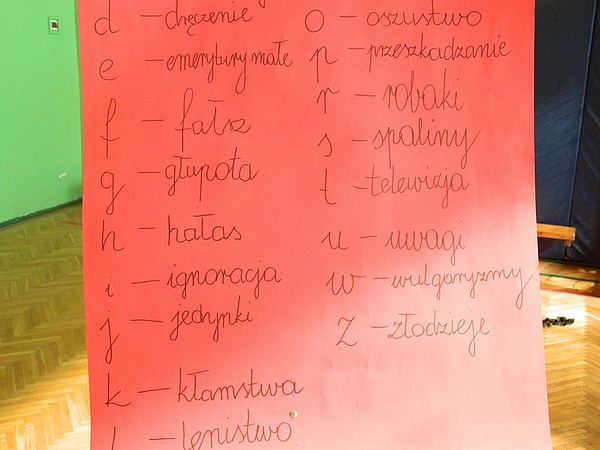 d – dręczenie
e – emerytury małe
f – fałsz
g – głupota
h – hałas
i – ignoracja
j – jedynki
k – kłamstwa
l – lenistwo
o – oszustwo
p – przeszkadzanie
r – robaki
s – spaliny
t – telewizja
u – uwagi
w – wulgaryzmy
z – złodzieje